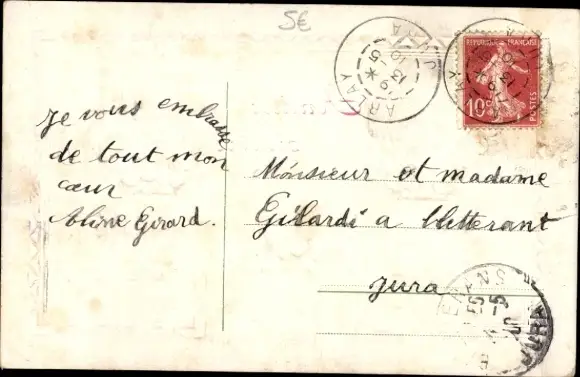 5€
ARLAY
JURA
REPUBLIQUE FRANÇAISE
10c
POSTES
Je vous embrasse
de tout mon
cœur
Aline Girard.
Monsieur et madame
Gilardi a
Jura
JURA